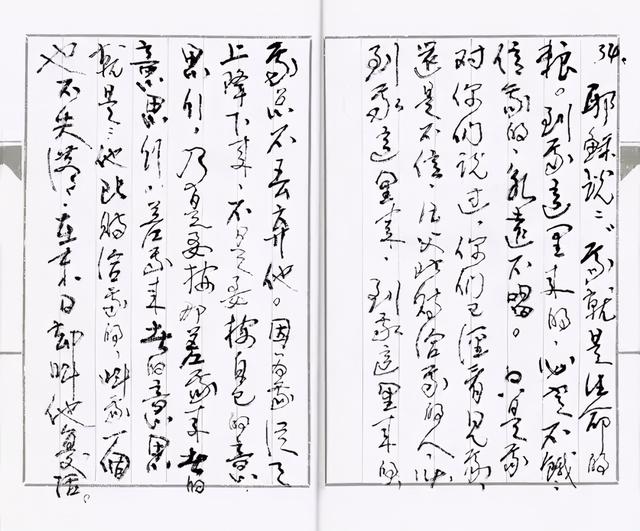 34. 耶穌說：「我就是生命的
粮。到我這里来的，必定不餓，
信我的，永遠不喝。只是我
对你们說过，你们已經看見我，
還是不信，凡父所賜給我的人，必
到我這里来，到我這里来的，
我总不丟弃他。因为我從天
上降下来，不是要按自己的意
思行，乃是要按那差我来者的
意思行，差我来者的意思
就是：他所賜給我的，叫我一個
也不失落，在末日却叫他复活。